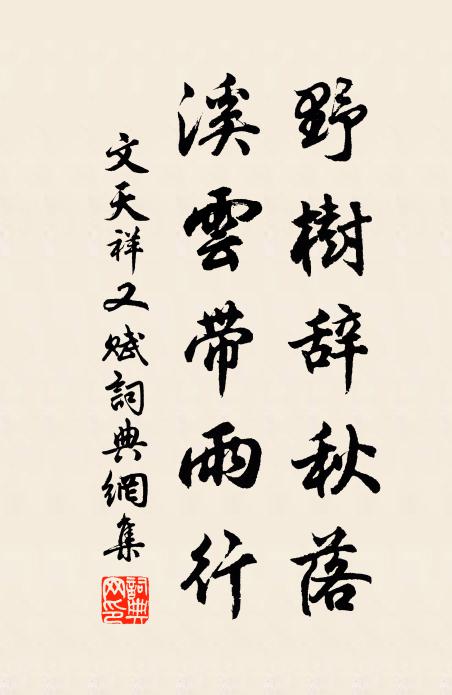 野樹辞秋落
溪雲帶雨行
文天祥又賦詞典網集
詞典网印